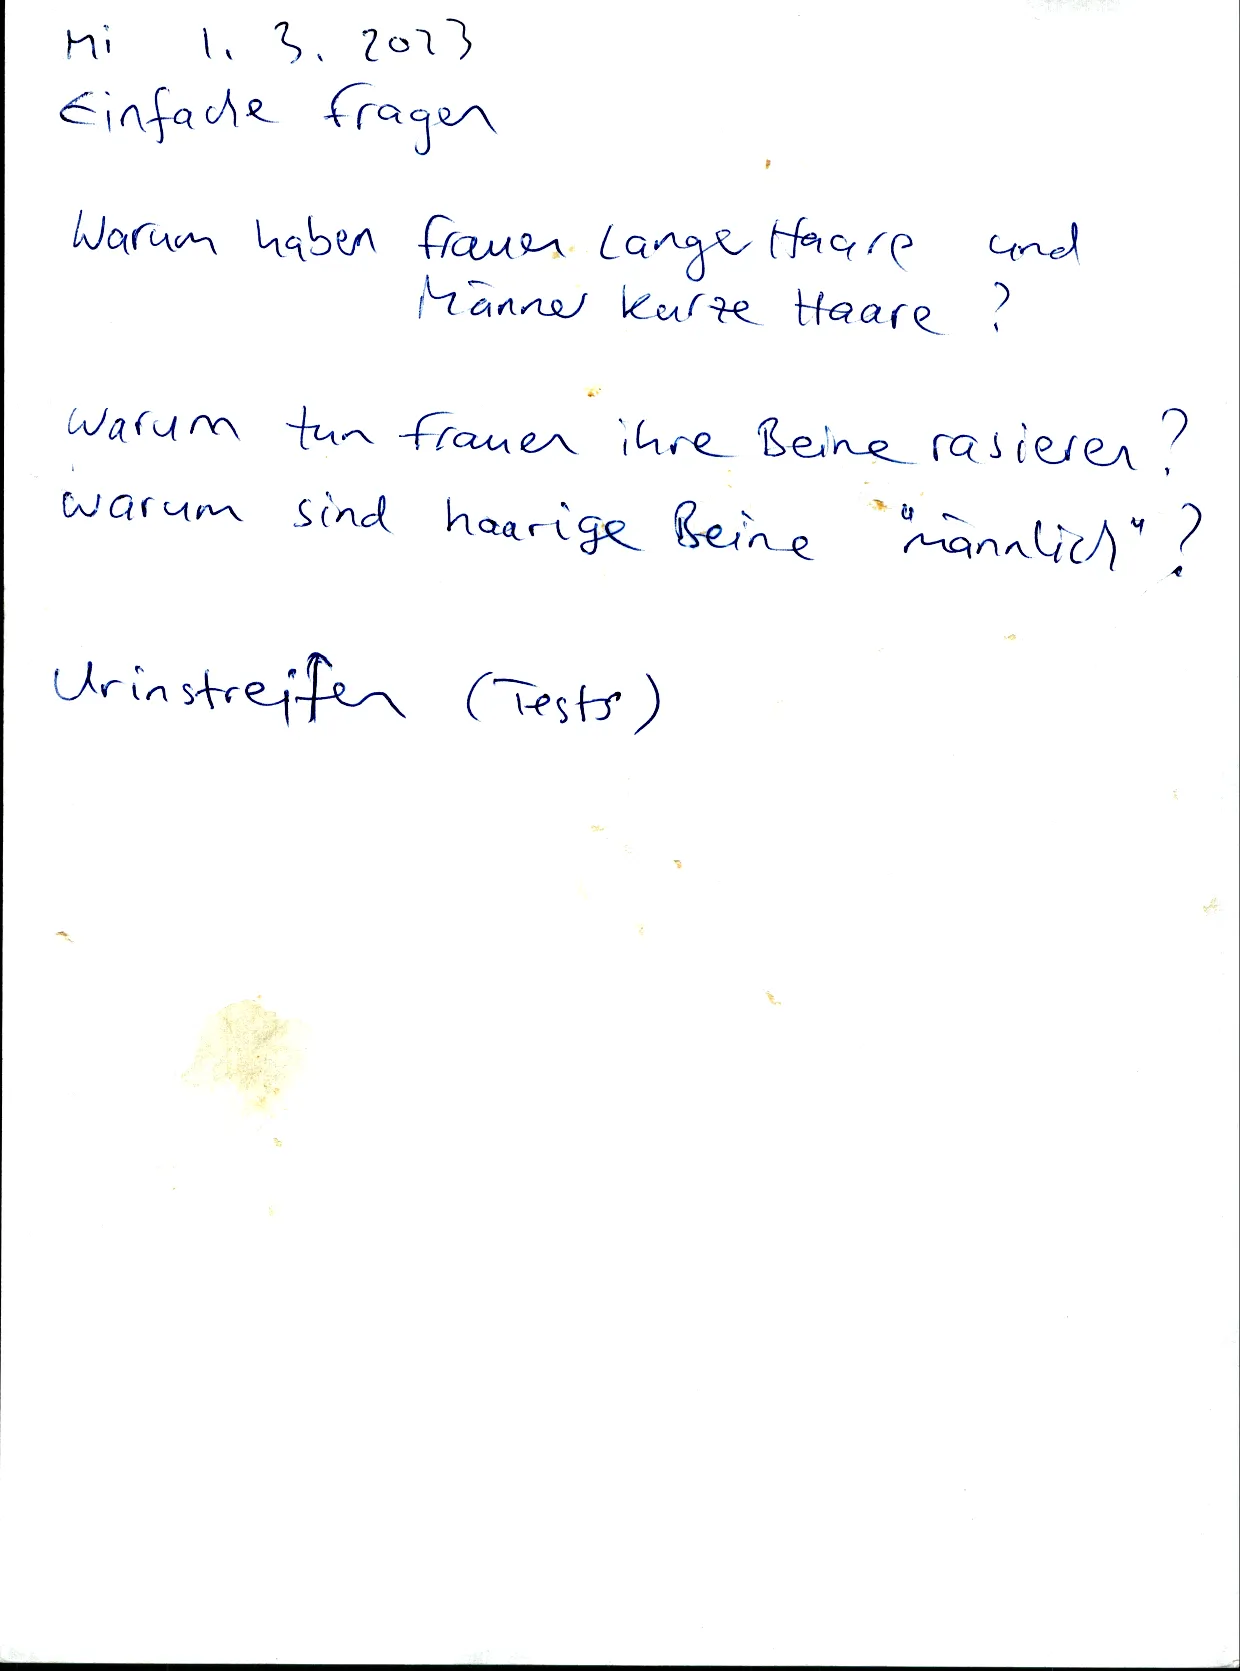 Mi 1. 3. 2023
Einfache Fragen
Warum haben Frauen Lange Haare und
Männer kurze Haare ?
warum tun Frauen ihre Beine rasieren ?
warum sind haarige Beine "männlich" ?
Urinstreifen (Tests)